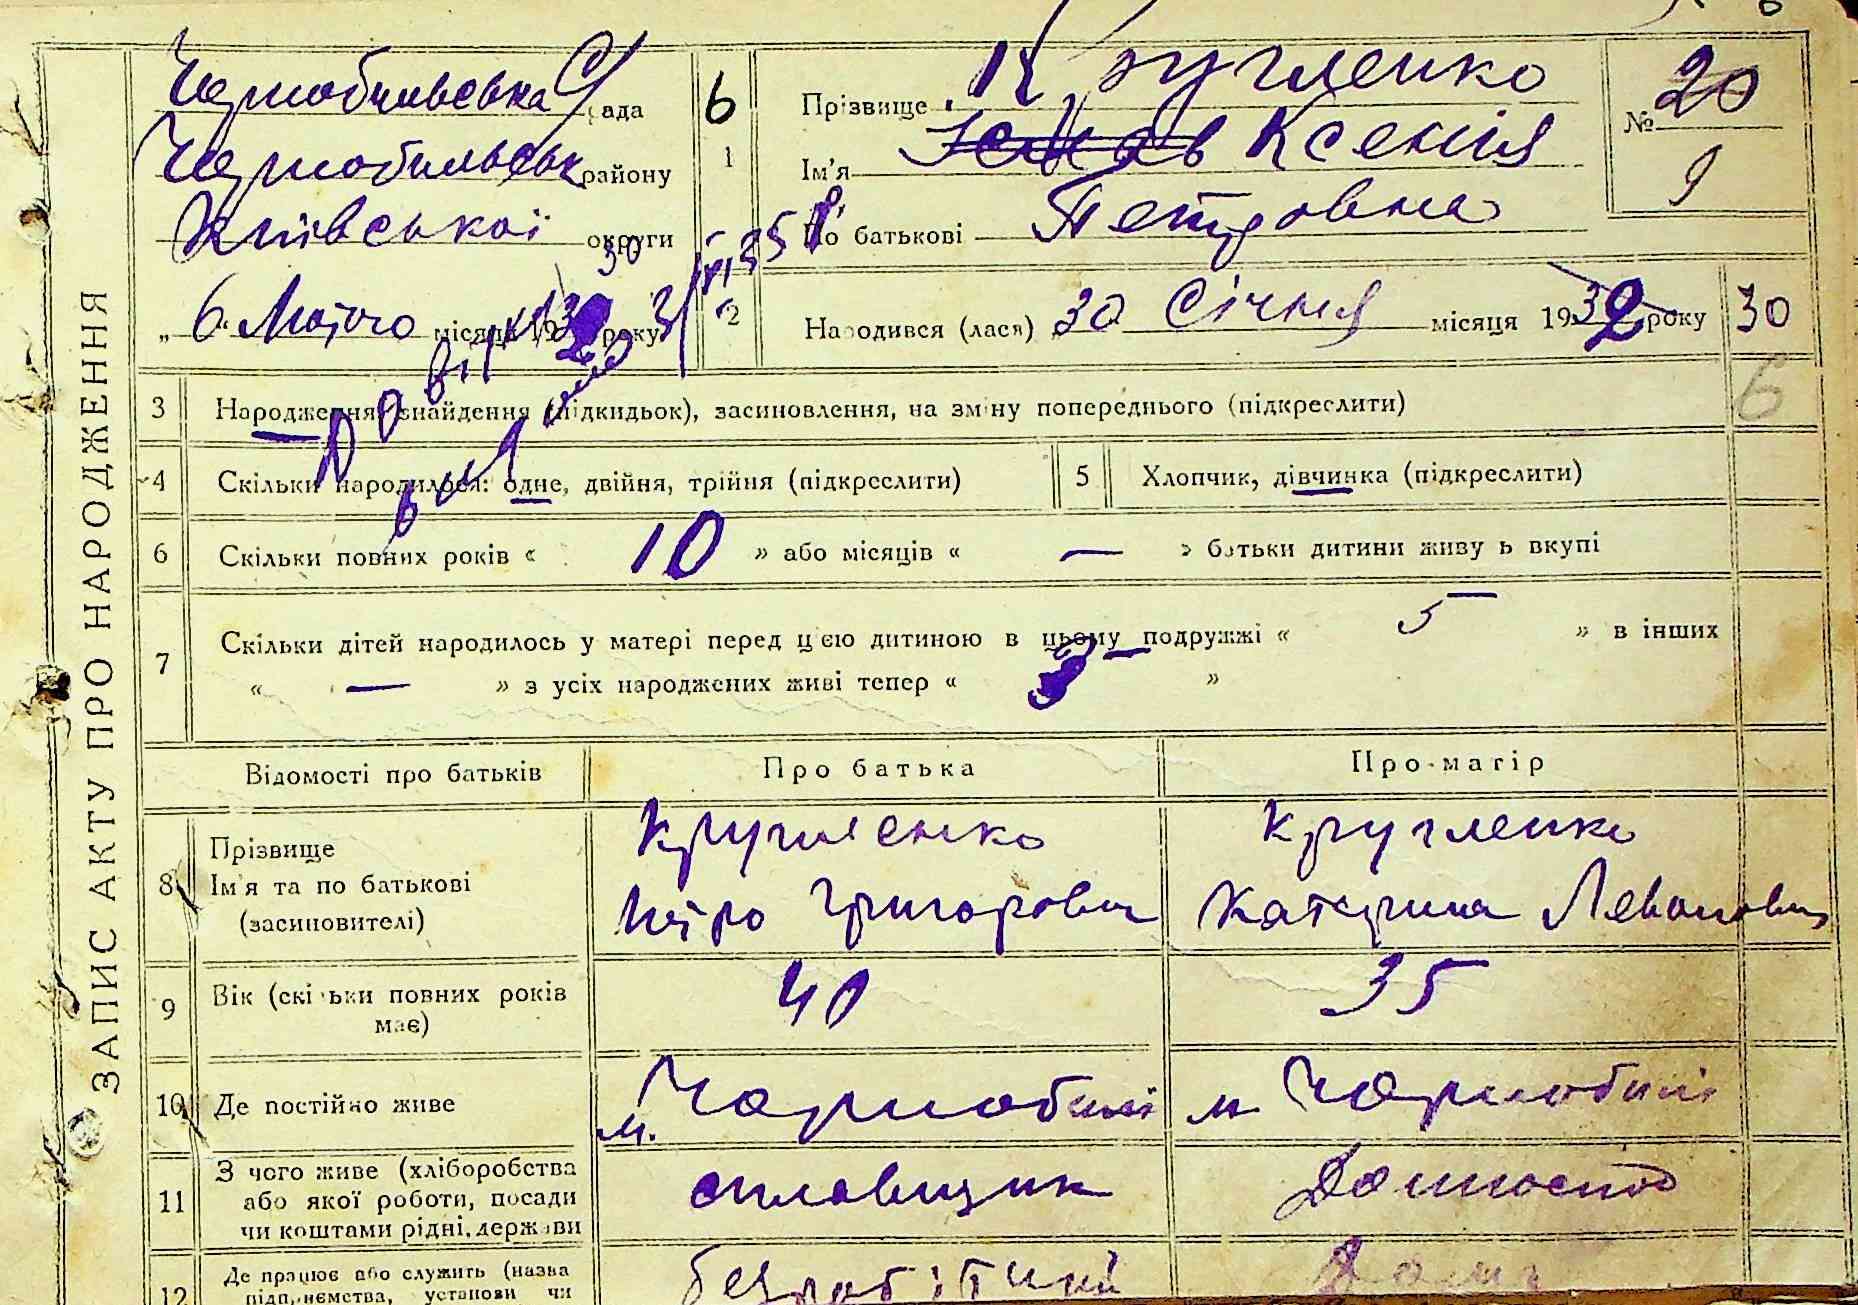 ЗАПИС АКТУ ПРО НАРОДЖЕННЯ
Чернобильська С/рада
Чернобильськ району
Київської округи
„6“ Лютого місяця 1932 року
б
1
Прізвище Кругленко
Ім'я Ксенія
По батькові Петровна
№ 20
9
2
Народився (лася) 30 Січня місяця 1932 року
30
6
3 Народження, знайдення (підкидьок), засиновлення, на зміну попереднього (підкреслити)
4 Скільки народилося: одне, двійня, трійня (підкреслити)
5 Хлопчик, дівчинка (підкреслити)
6 Скільки повних років « 10 » або місяців « — » батьки дитини живуть вкупі
7 Скільки дітей народилось у матері перед цією дитиною в цьому подружжі « 5 » в інших
« — » з усіх народжених живі тепер « 3 »
Відомості про батьків Про батька Про матір
8 Прізвище
Ім'я та по батькові
(засиновителі)
Кругленко
Петро Григорович
Кругленко
Катерина
9 Вік (скільки повних років
має)
40 35
10 Де постійно живе м. Чорнобилі м Чорнобилі
11 З чого живе (хліборобства
або якої роботи, посади
чи коштами рідні, держави
сплавщик Домгоспод
12 Де працює або служить (назва
підприємства, установи чи
безробітний Дом